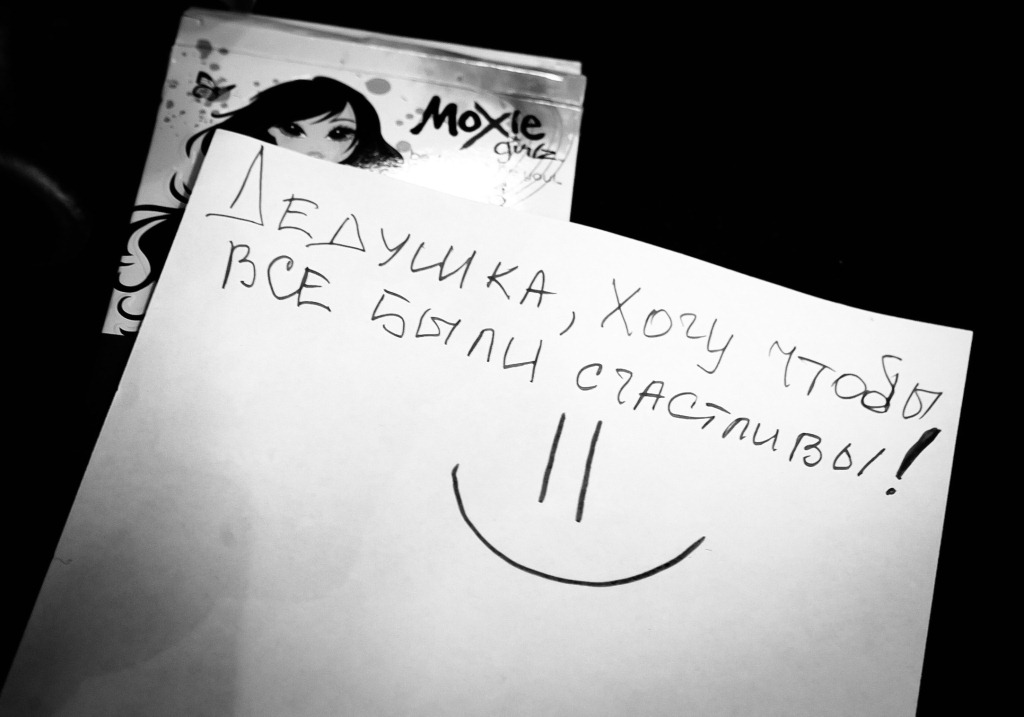 Moxie
girlz
Дедушка, хочу чтобы
все были счастливы!